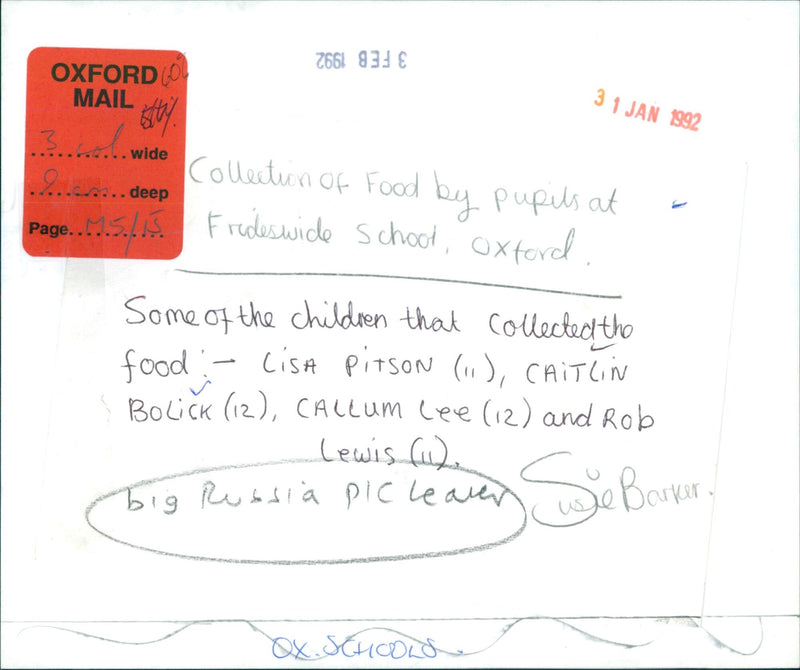 OXFORD
MAIL
3 col wide
9 cm deep
Page M5/15
3 FEB 1992
31 JAN 1992
Collection of Food by pupils at
Frideswide School, Oxford.
Some of the children that collected the
food :- LISA PITSON (11), CAITLIN
BOLICK (12), CALLUM Lee (12) and Rob
Lewis (11).
big Russia PIC Leaver
Susie Barker.
OX. SCHOOLS.